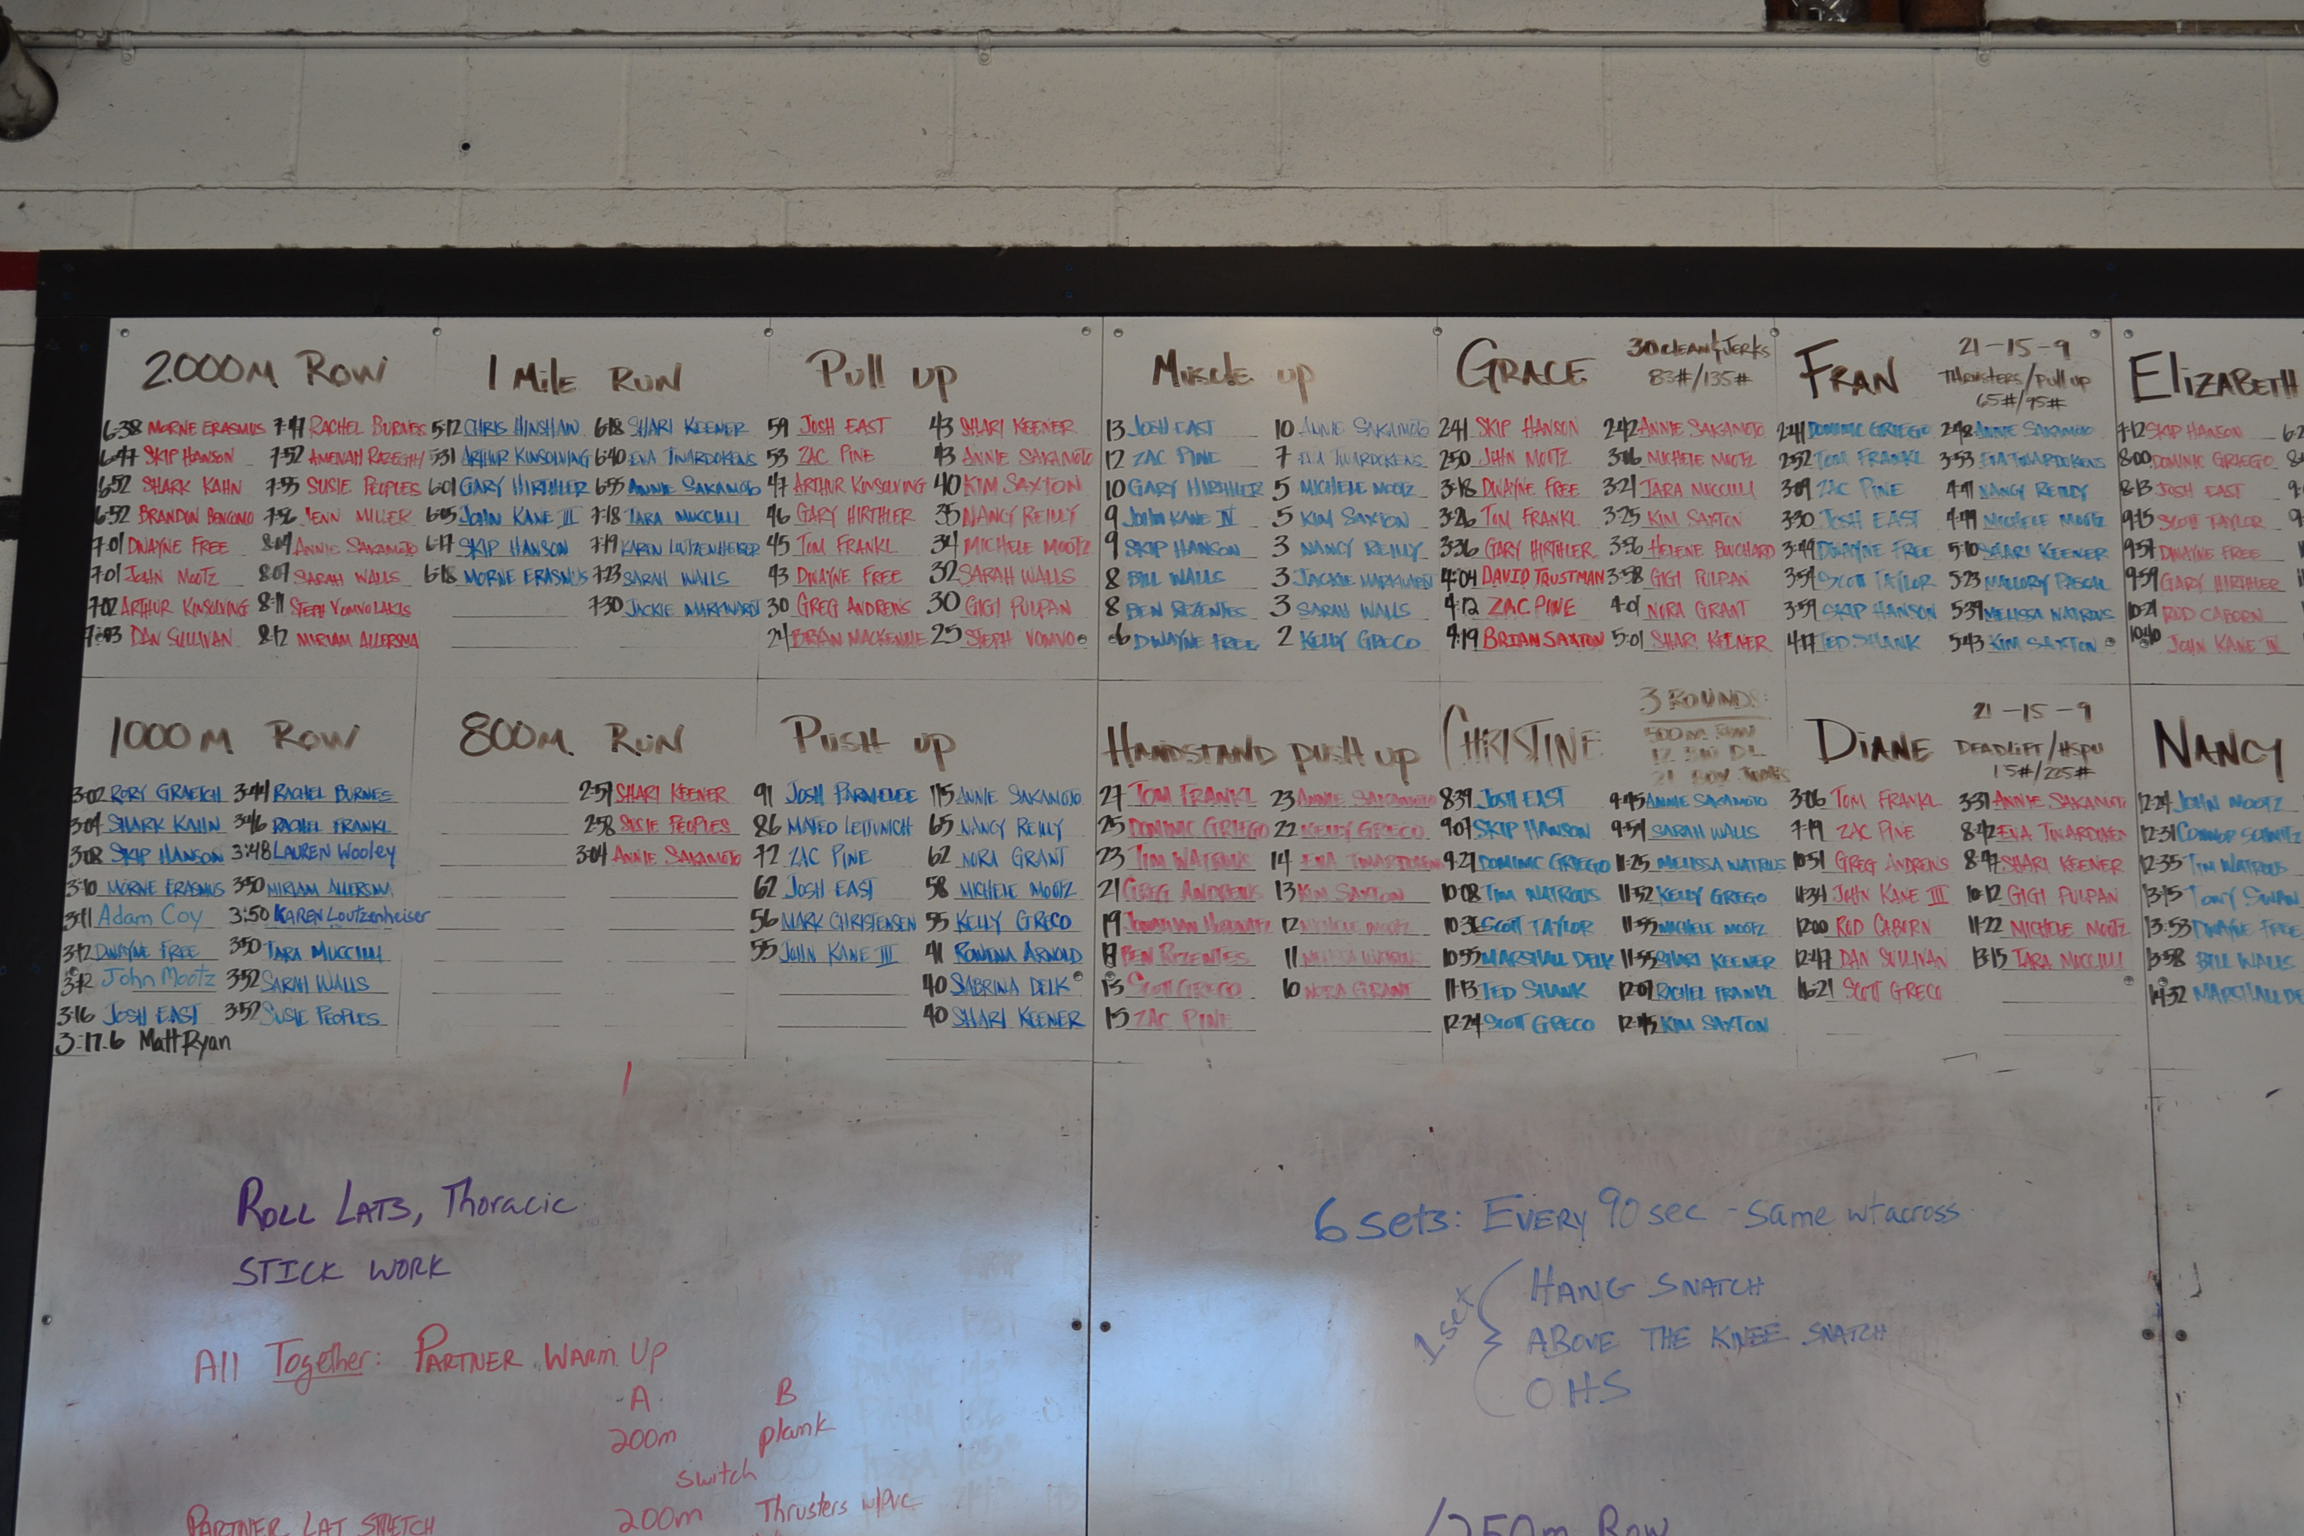 2000M ROW
6:38 MORNE ERASMUS 7:47 RACHEL BURNES
6:47 SKIP HANSON 7:52 AMENAH
6:52 SHARK KAHN 7:55 SUSIE PEOPLES
6:52 BRANDON 7:56 JENN MILLER
7:01 DWAYNE FREE 8:04 ANNIE SAKAMOTO
7:01 JOHN MOOTZ 8:07 SARAH WALLS
7:02 ARTHUR KINSOLVING 8:11 STEPH VOMVOLAKIS
7:03 DAN SULLIVAN 8:12 MIRIAM ALLERSMA
1 MILE RUN
5:12 CHRIS HINSHAW 6:18 SHARI KEENER
5:31 ARTHUR KINSOLVING 6:40 EVA TWARDOKENS
6:01 GARY HIRTHLER 6:55 ANNIE SAKAMOTO
6:05 JOHN KANE III 7:18 TARA MUCCILLI
6:17 SKIP HANSON 7:19 KAREN LUTZENHEISER
6:18 MORNE ERASMUS 7:23 SARAH WALLS
7:30 JACKIE MARKWARDT
PULL UP
59 JOSH EAST 43 SHARI KEENER
53 ZAC PINE 43 ANNIE SAKAMOTO
47 ARTHUR KINSOLVING 40 KIM SAXTON
46 GARY HIRTHLER 35 NANCY REILLY
45 TOM FRANKL 34 MICHELE MOOTZ
43 DWAYNE FREE 32 SARAH WALLS
30 GREG ANDRENS 30 GIGI PULPAN
24 BRYAN MACKENZIE 25 STEPH VOMVO
MUSCLE UP
13 JOSH EAST 10 ANNIE SAKAMOTO
12 ZAC PINE 7 EVA TWARDOKENS
10 GARY HIRTHLER 5 MICHELE MOOTZ
9 JOHN KANE IV 5 KIM SAXTON
9 SKIP HANSON 3 NANCY REILLY
8 BILL WALLS 3 JACKIE MARKWARDT
8 BEN REZENTES 3 SARAH WALLS
6 DWAYNE FREE 2 KELLY GRECO
GRACE 30 CLEAN & JERKS
83#/135#
2:41 SKIP HANSON 2:42 ANNIE SAKAMOTO
2:50 JOHN MOOTZ 3:16 MICHELE MOOTZ
3:18 DWAYNE FREE 3:21 TARA MUCCILLI
3:26 TOM FRANKL 3:25 KIM SAXTON
3:36 GARY HIRTHLER 3:56 HELENE BOUCHARD
4:04 DAVID TRUSTMAN 3:58 GIGI PULPAN
4:12 ZAC PINE 4:01 NORA GRANT
4:19 BRIAN SAXTON 5:01 SHARI KEENER
FRAN 21-15-9
THRUSTERS/PULL UP
65#/95#
2:41 DOMINIC GRIEGO 2:48 ANNIE SAKAMOTO
2:52 TOM FRANKL 3:53 EVA TWARDOKENS
3:09 ZAC PINE 4:41 NANCY REILLY
3:30 JOSH EAST 4:49 MICHELE MOOTZ
3:49 DWAYNE FREE 5:10 SHARI KEENER
3:54 SCOTT TAYLOR 5:23 MALLORY PASCAL
3:59 SKIP HANSON 5:39 MELISSA WATROUS
4:17 TED SHANK 5:43 KIM SAXTON
ELIZABETH
7:12 SKIP HANSON
8:00 DOMINIC GRIEGO
8:13 JOSH EAST
9:15 SCOTT TAYLOR
9:57 DWAYNE FREE
9:59 GARY HIRTHLER
10:21 ROD CABORN
10:40 JOHN KANE IV
1000M ROW
3:02 RORY GRAETCH 3:44 RACHEL BURNES
3:04 SHARK KAHN 3:46 RACHEL FRANKL
3:08 SKIP HANSON 3:48 LAUREN WOOLEY
3:10 MORNE ERASMUS 3:50 MIRIAM ALLERSMA
3:11 Adam Coy 3:50 KAREN Loutzenheiser
3:12 DWAYNE FREE 3:50 TARA MUCCILLI
3:12 John Mootz 3:52 SARAH WALLS
3:16 JOSH EAST 3:52 SUSIE PEOPLES
3:17.6 Matt Ryan
800M RUN
2:57 SHARI KEENER
2:58 SUSIE PEOPLES
3:04 ANNIE SAKAMOTO
PUSH UP
91 JOSH PARMHOUSE 115 ANNIE SAKAMOTO
86 MATEO 65 NANCY REILLY
72 ZAC PINE 62 NORA GRANT
62 JOSH EAST 58 MICHELE MOOTZ
56 MARK CHRISTENSEN 55 KELLY GRECO
55 JOHN KANE III 41 ROWENA ARNOLD
40 SABRINA DELK
40 SHARI KEENER
HANDSTAND PUSH UP
27 TOM FRANKL 23 ANNIE SAKAMOTO
25 DOMINIC GRIEGO 22 KELLY GRECO
23 TIM WATROUS 14 EVA TWARDOKENS
21 GREG ANDRENS 13 KIM SAXTON
19 JONATHAN 12 MICHELE MOOTZ
BEN REZENTES 11 MELISSA WATROUS
SCOTT GRECO 10 NORA GRANT
15 ZAC PINE
CHRISTINE 3 ROUNDS:
500 M ROW
12 BW DL
21 BOX JUMPS
8:39 JOSH EAST 9:45 ANNIE SAKAMOTO
9:07 SKIP HANSON 9:59 SARAH WALLS
9:27 DOMINIC GRIEGO 11:25 MELISSA WATROUS
10:08 TIM WATROUS 11:52 KELLY GREGO
10:36 SCOTT TAYLOR 11:55 MICHELE MOOTZ
10:55 MARSHALL DELK 11:55 SHARI KEENER
11:13 TED SHANK 12:07 RACHEL FRANKL
12:24 SCOTT GRECO 12:45 KIM SAXTON
DIANE 21-15-9
DEADLIFT/HSPU
15#/225#
3:06 TOM FRANKL 3:31 ANNIE SAKAMOTO
7:19 ZAC PINE 8:42 EVA TWARDOKEN
10:51 GREG ANDRENS 8:47 SHARI KEENER
11:34 JOHN KANE III 10:12 GIGI PULPAN
12:00 ROD CABORN 11:22 MICHELE MOOTZ
12:47 DAN SULLIVAN 13:15 TARA MUCCILLI
16:21 SCOTT GRECO
NANCY
12:24 JOHN MOOTZ
12:31 CONNOR
12:35 TIM WATROUS
13:15 TONY SWAN
13:53 DWAYNE FREE
13:58 BILL WALLS
14:32 MARSHALL DE
ROLL LATS, Thoracic
STICK WORK
All Together: PARTNER WARM UP
A B
200m plank
switch
200m Thrusters w/PVC
PARTNER LAT STRETCH
6 sets: EVERY 90 sec - same wt across
1 set
HANG SNATCH
ABOVE THE KNEE SNATCH
OHS
250m Row